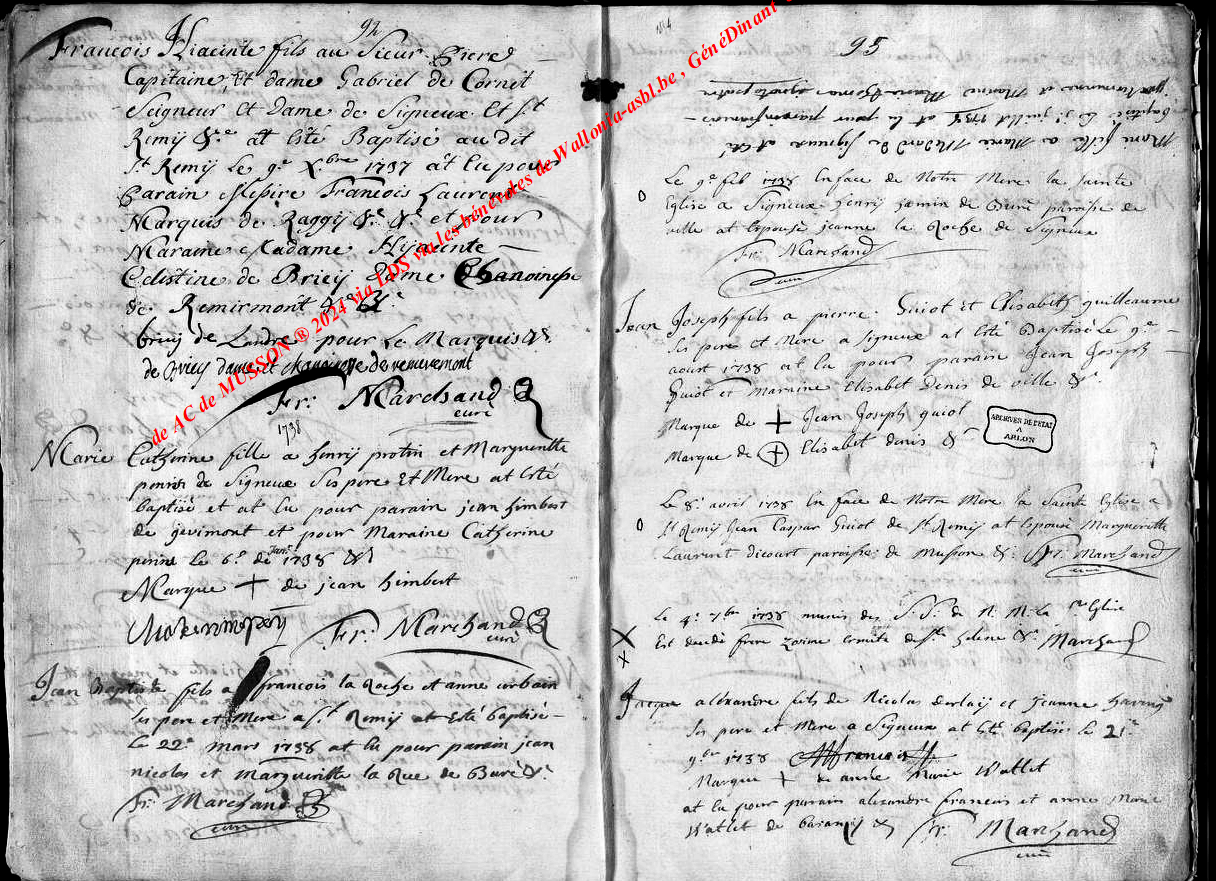 92
François Hiacinte fils au Sieur Piere
Capitaine, Et dame Gabriel de Cornet
Seigneur Et Dame de Signeux Et st
Remÿ &ce at Esté Baptisé au dit
St Remÿ Le 9e Xbre 1737 at Eu pour
Parain Messire François Laurent
Marquis de Raggÿ &c &c et pour
Maraine Madame Hÿacinte
Celestine de Brieÿ Dame Chanoinesse
de Remirmont
brieÿ de Landre pour Le Marquis &c
de Brieÿ dame et chanoinesse de remiremont
Fr: Marchand
curé
1738
Marie Catherine fille a henrÿ protin et Margueritte
de Signeux Ses pere Et Mere at Esté
baptisé et at Eu pour parain jean himbert
de gevimont et pour Maraine Catherine
le 6e de janr 1738 &c
Marque + de jean himbert
Fr: Marchand
curé
Jean Baptiste fils a françois la Roche et anne urbain
Ses pere et Mere a St Remÿ at Esté baptisé
Le 22e mars 1738 at Eu pour parain jean
nicolas et Margueritte la Rue de Buré &c
Fr: Marchand
curé
de AC de MUSSON ® 2024 via LDS via les bénévoles de Wallonia-asbl.be , GénéDinant
95
Marie fille a Marie Medard de Signeux at esté
baptisé Le 9e juillet 1738 at Eu pour parain francois
et Marine
Le 9e feb 1738 En face de Notre Mere la Sainte
Eglise a Signeux henrÿ jamin de Buré paroisse de
ville at Epousé jeanne la Roche de Signeux
Fr: Marchand
curé
Jean Joseph fils a pierre Guiot et Elisabeth guilleaume
Ses pere et Mere a Signeux at Esté Baptisé Le 9e
aoust 1738 at Eu pour parain Jean Joseph
Guiot et Maraine Elisabet Denis de ville &c
Marque de + Jean Joseph guiot
Marque de + Elisabet denis &c
ARCHIVES DE L'ETAT
A
ARLON
Le 8e avril 1738 En face de Notre Mere la Sainte Eglise a
St Remÿ Jean Caspar Guiot de St Remÿ at Epousé Margueritte
Laurent dicourt paroisse de Musson &c Fr: Marchand
curé
Le 4e 7bre 1738 munis des S. S. de N. M. La Ste Eglise
Est decedé frere Zozime ermite de Ste helene &c Marchand
Jacque alexandre fils de Nicolas derlaÿ et jeanne
Ses pere et Mere a Signeux at Esté baptisé le 21e
9bre 1738
Marque + de anne Marie Watlet
at Eu pour parain alexandre francois et anne Marie
Watlet de baranzÿ &c Fr: Marchand
curé